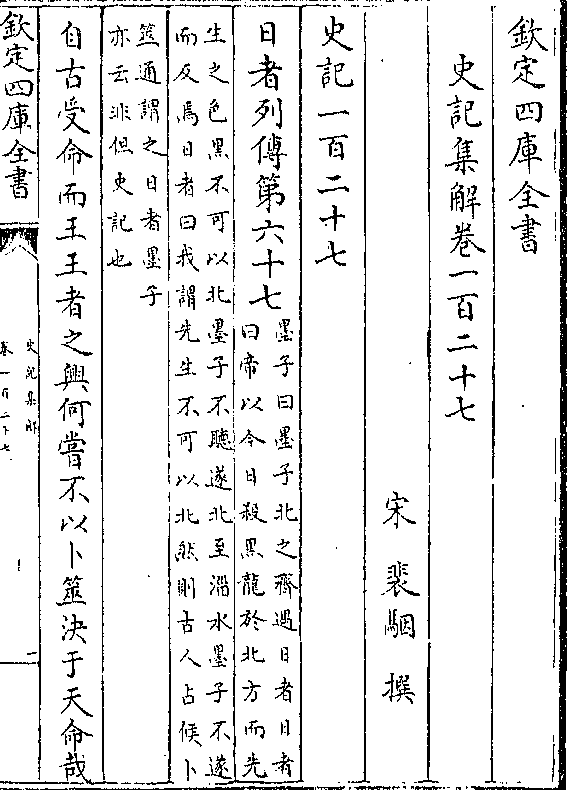 欽定四庫全書
史記集解卷一百二十七
宋 裴駰 撰
史記一百二十七
日者列傳第六十七
墨子曰墨子北之齊遇日者日者
曰帝以今日殺黑龍於北方而先
生之色黑不可以北墨子不聽遂北至淄水墨子不遂
而反焉日者曰我謂先生不可以北然則古人占候卜
筮通謂之日者墨子
亦云非但史記也
自古受命而王王者之興何嘗不以卜筮決于天命哉
欽定四庫全書
史記集解
卷一百二十七
一